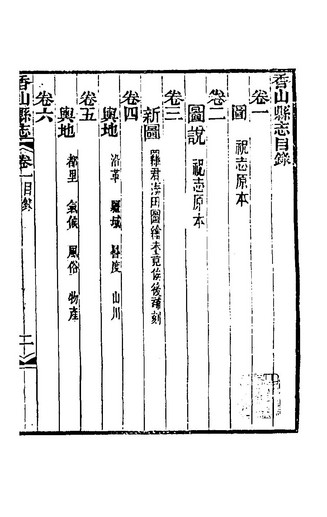 香山縣志目錄
卷一
圖 祝志原本
卷二
圖說 祝志原本
卷三
新圖 羅君清田圖繪未竟俟後補刻
卷四
輿地 沿革 疆域 晷度 山川
卷五
輿地 都里 氣候 風俗 物產
卷六
香山縣志 卷一目錄 二